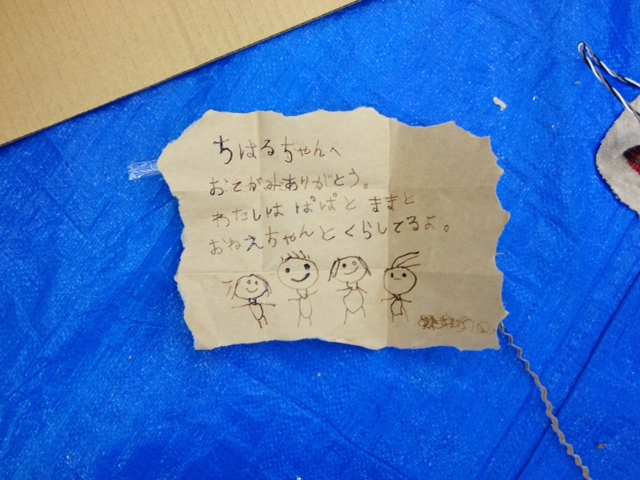 ちはるちゃんへ
おてがみありがとう。
わたしは ぱぱと ままと
おねえちゃんとくらしてるよ。